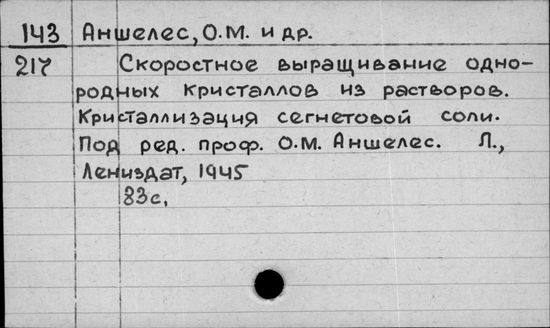 143 Аншелес, О.М. и др.
217 Скоростное выращивание одно-
родных кристаллов из растворов.
Кристаллизация сегнетовой соли.
Под ред. проф. О.М. Аншелес. Л.,
Лениздат, 1945
83с.